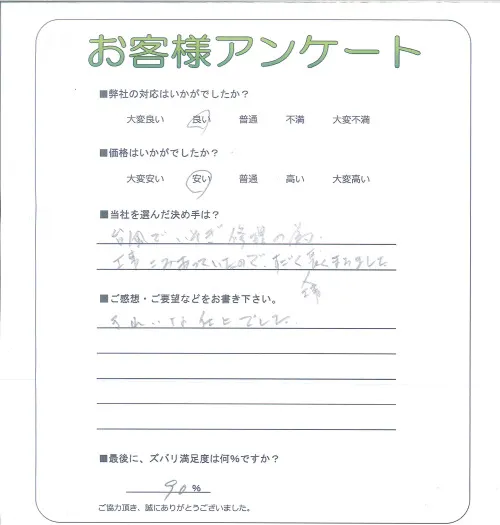 お客様アンケート
■弊社の対応はいかがでしたか?
大変良い 良い 普通 不満 大変不満
■価格はいかがでしたか?
大変安い 安い 普通 高い 大変高い
■当社を選んだ決め手は?
台風でいそぎ修理の為.
工事こみあっていたので、
工事
■ご感想・ご要望などをお書き下さい。
きれいな仕上でした.
■最後に、ズバリ満足度は何%ですか?
90 %
ご協力頂き、誠にありがとうございました。